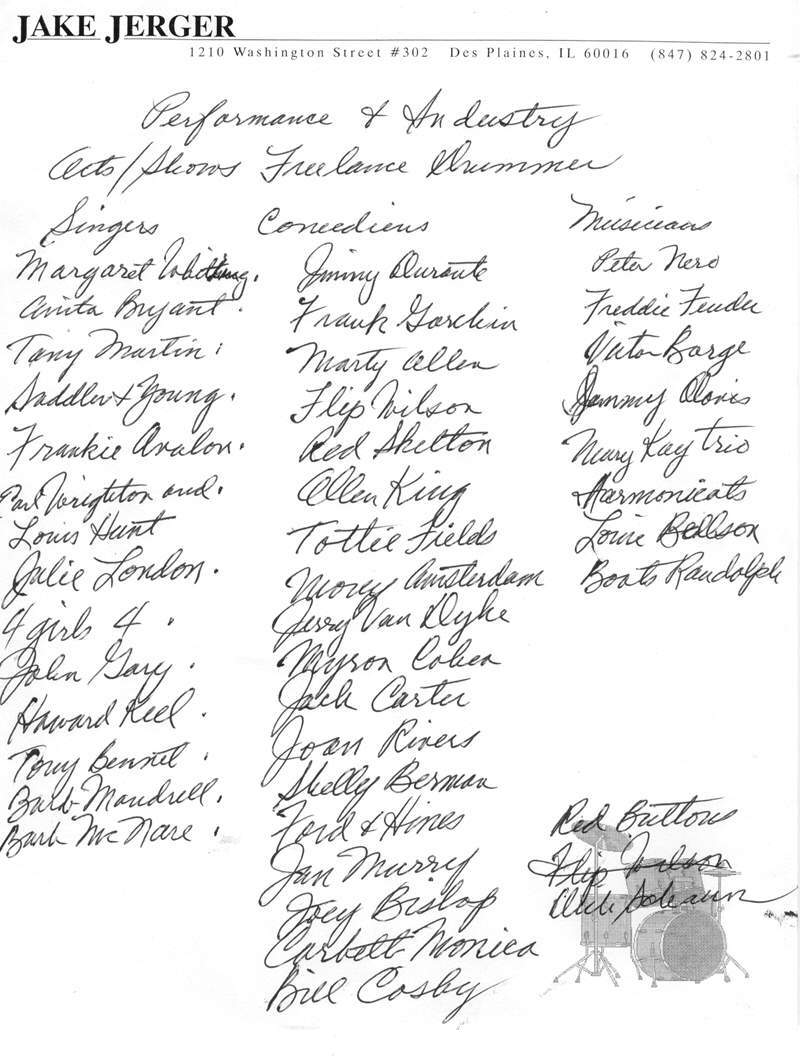 JAKE JERGER
1210 Washington Street #302 Des Plaines, IL 60016 (847) 824-2801
Performance & Industry
Acts/Shows Freelance Drummer
Singers
Margaret Whiting.
Anita Bryant.
Tony Martin.
Saddler & Young.
Frankie Avalon.
Paul Wrighton and.
Louis Hunt
Julie London.
4 girls 4.
John Gary.
Howard Keel.
Tony Bennet.
Barb Mandrell.
Barb McNare.
Comediens
Jimmy Durante
Frank Gorshin
Marty Allen
Flip Wilson
Red Skelton
Allen King
Tottie Fields
Morey Amsterdam
Jerry Van Dyke
Myron Cohen
Jack Carter
Joan Rivers
Shelly Berman
Ford & Hines
Jan Murry
Joey Bishop
Corbett Monica
Bill Cosby
Musicians
Peter Nero
Freddie Fender
Victor Borge
Sammy Davis
Mary Kay trio
Harmonicats
Louie Bellson
Boots Randolph
Red Buttons
Flip Wilson